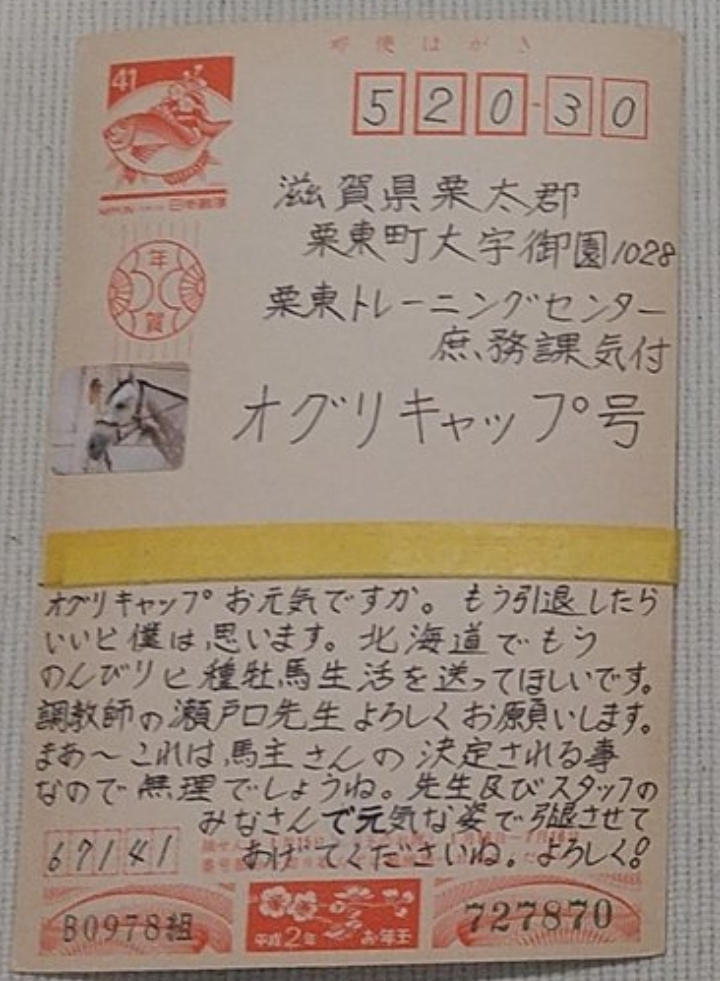 郵便はがき
41
520-30
NIPPON 日本郵便
滋賀県栗太郡
栗東町大字御園1028
年
賀
栗東トレーニングセンター
庶務課気付
オグリキャップ号
オグリキャップ お元気ですか。もう引退したら
いいと僕は思います。北海道でもう
のんびりと種牡馬生活を送ってほしいです。
調教師の瀬戸口先生よろしくお願いします。
まあ〜これは馬主さんの決定される事
なので無理でしょうね。先生及びスタッフの
みなさんで元気な姿で引退させて
あげてくださいね。よろしく!
67141
B0978組
平成2年 お年玉
727870